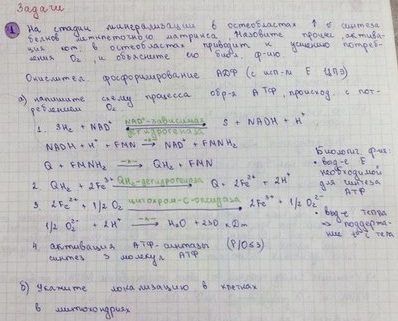 Задачи
1 На стадии минерализации в остеобластах ↑ V синтеза
белков остеоидного матрикса. Назовите процесс, актива-
ция кот. в остеобластах приводит к усилению потреб-
ления O₂, и объясните его биол. ф-ию.
Окислител. фосфорилирование АДФ (с исп-м E ЦПЭ)
а) напишите схему процесса обр-я АТФ, происход. с пот-
реблением O₂
1. SH₂ + NAD⁺ NAD⁺-зависимая дегидрогеназа S + NADH + H⁺
NADH + H⁺ + FMN → NAD⁺ + FMNH₂
Q + FMNH₂ → QH₂ + FMN
2. QH₂ + 2Fe³⁺ QH₂-дегидрогеназа Q + 2Fe²⁺ + 2H⁺
3. 2Fe²⁺ + 1/2 O₂ цитохром-С-оксидаза 2Fe³⁺ + 1/2 O²⁻
1/2 O²⁻ + 2H⁺ → H₂O + 230 кДж
4. активация АТФ-синтазы
синтез 3 молекул АТФ
Биологич. ф-ия:
• выд-е E необходимой для синтеза АТФ
• выд-е тепла ⇒ поддержа-
ние t°C тела
б) Укажите локализацию в клетках
в митохондриях